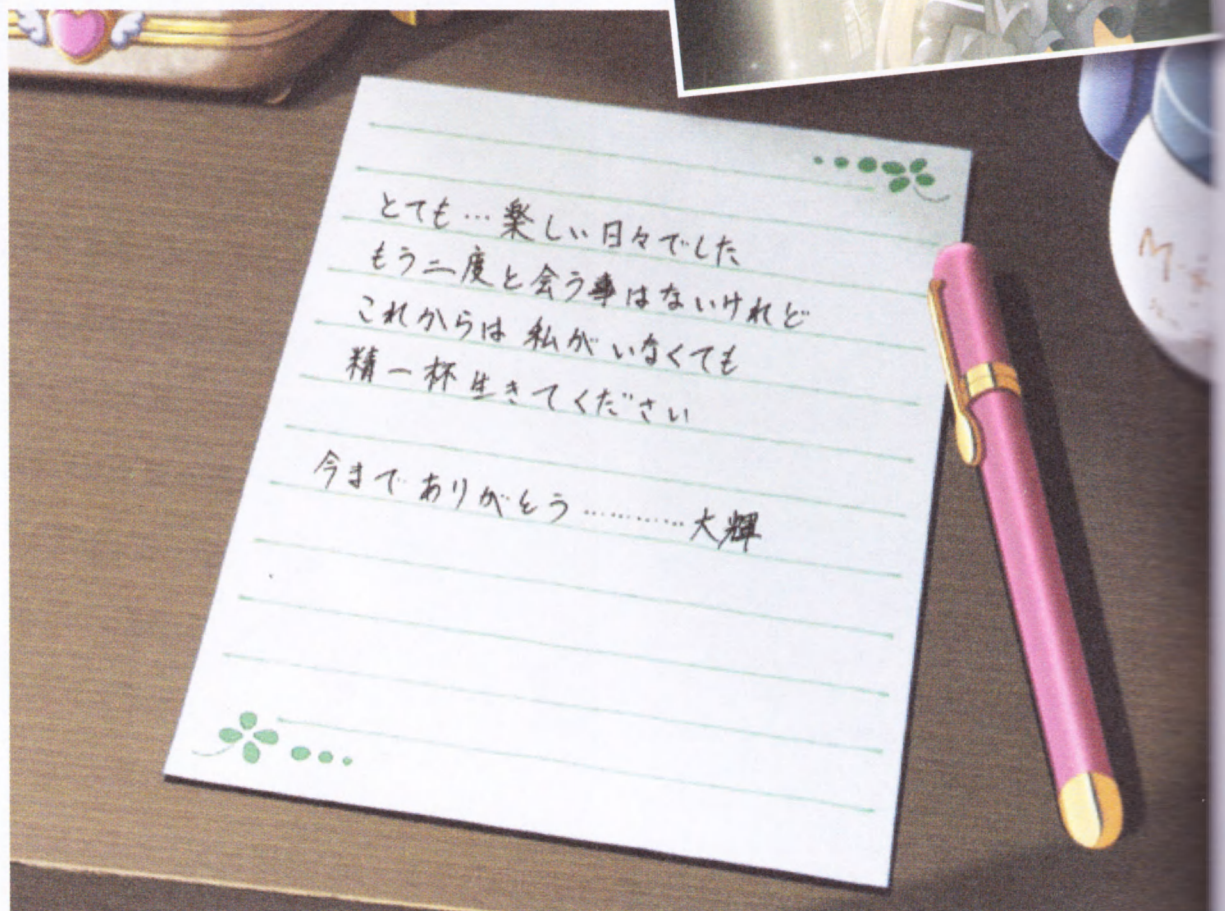 とても…楽しい日々でした
もう二度と会う事はないけれど
これからは私がいなくても
精一杯生きてください
今までありがとう…………大輝
M